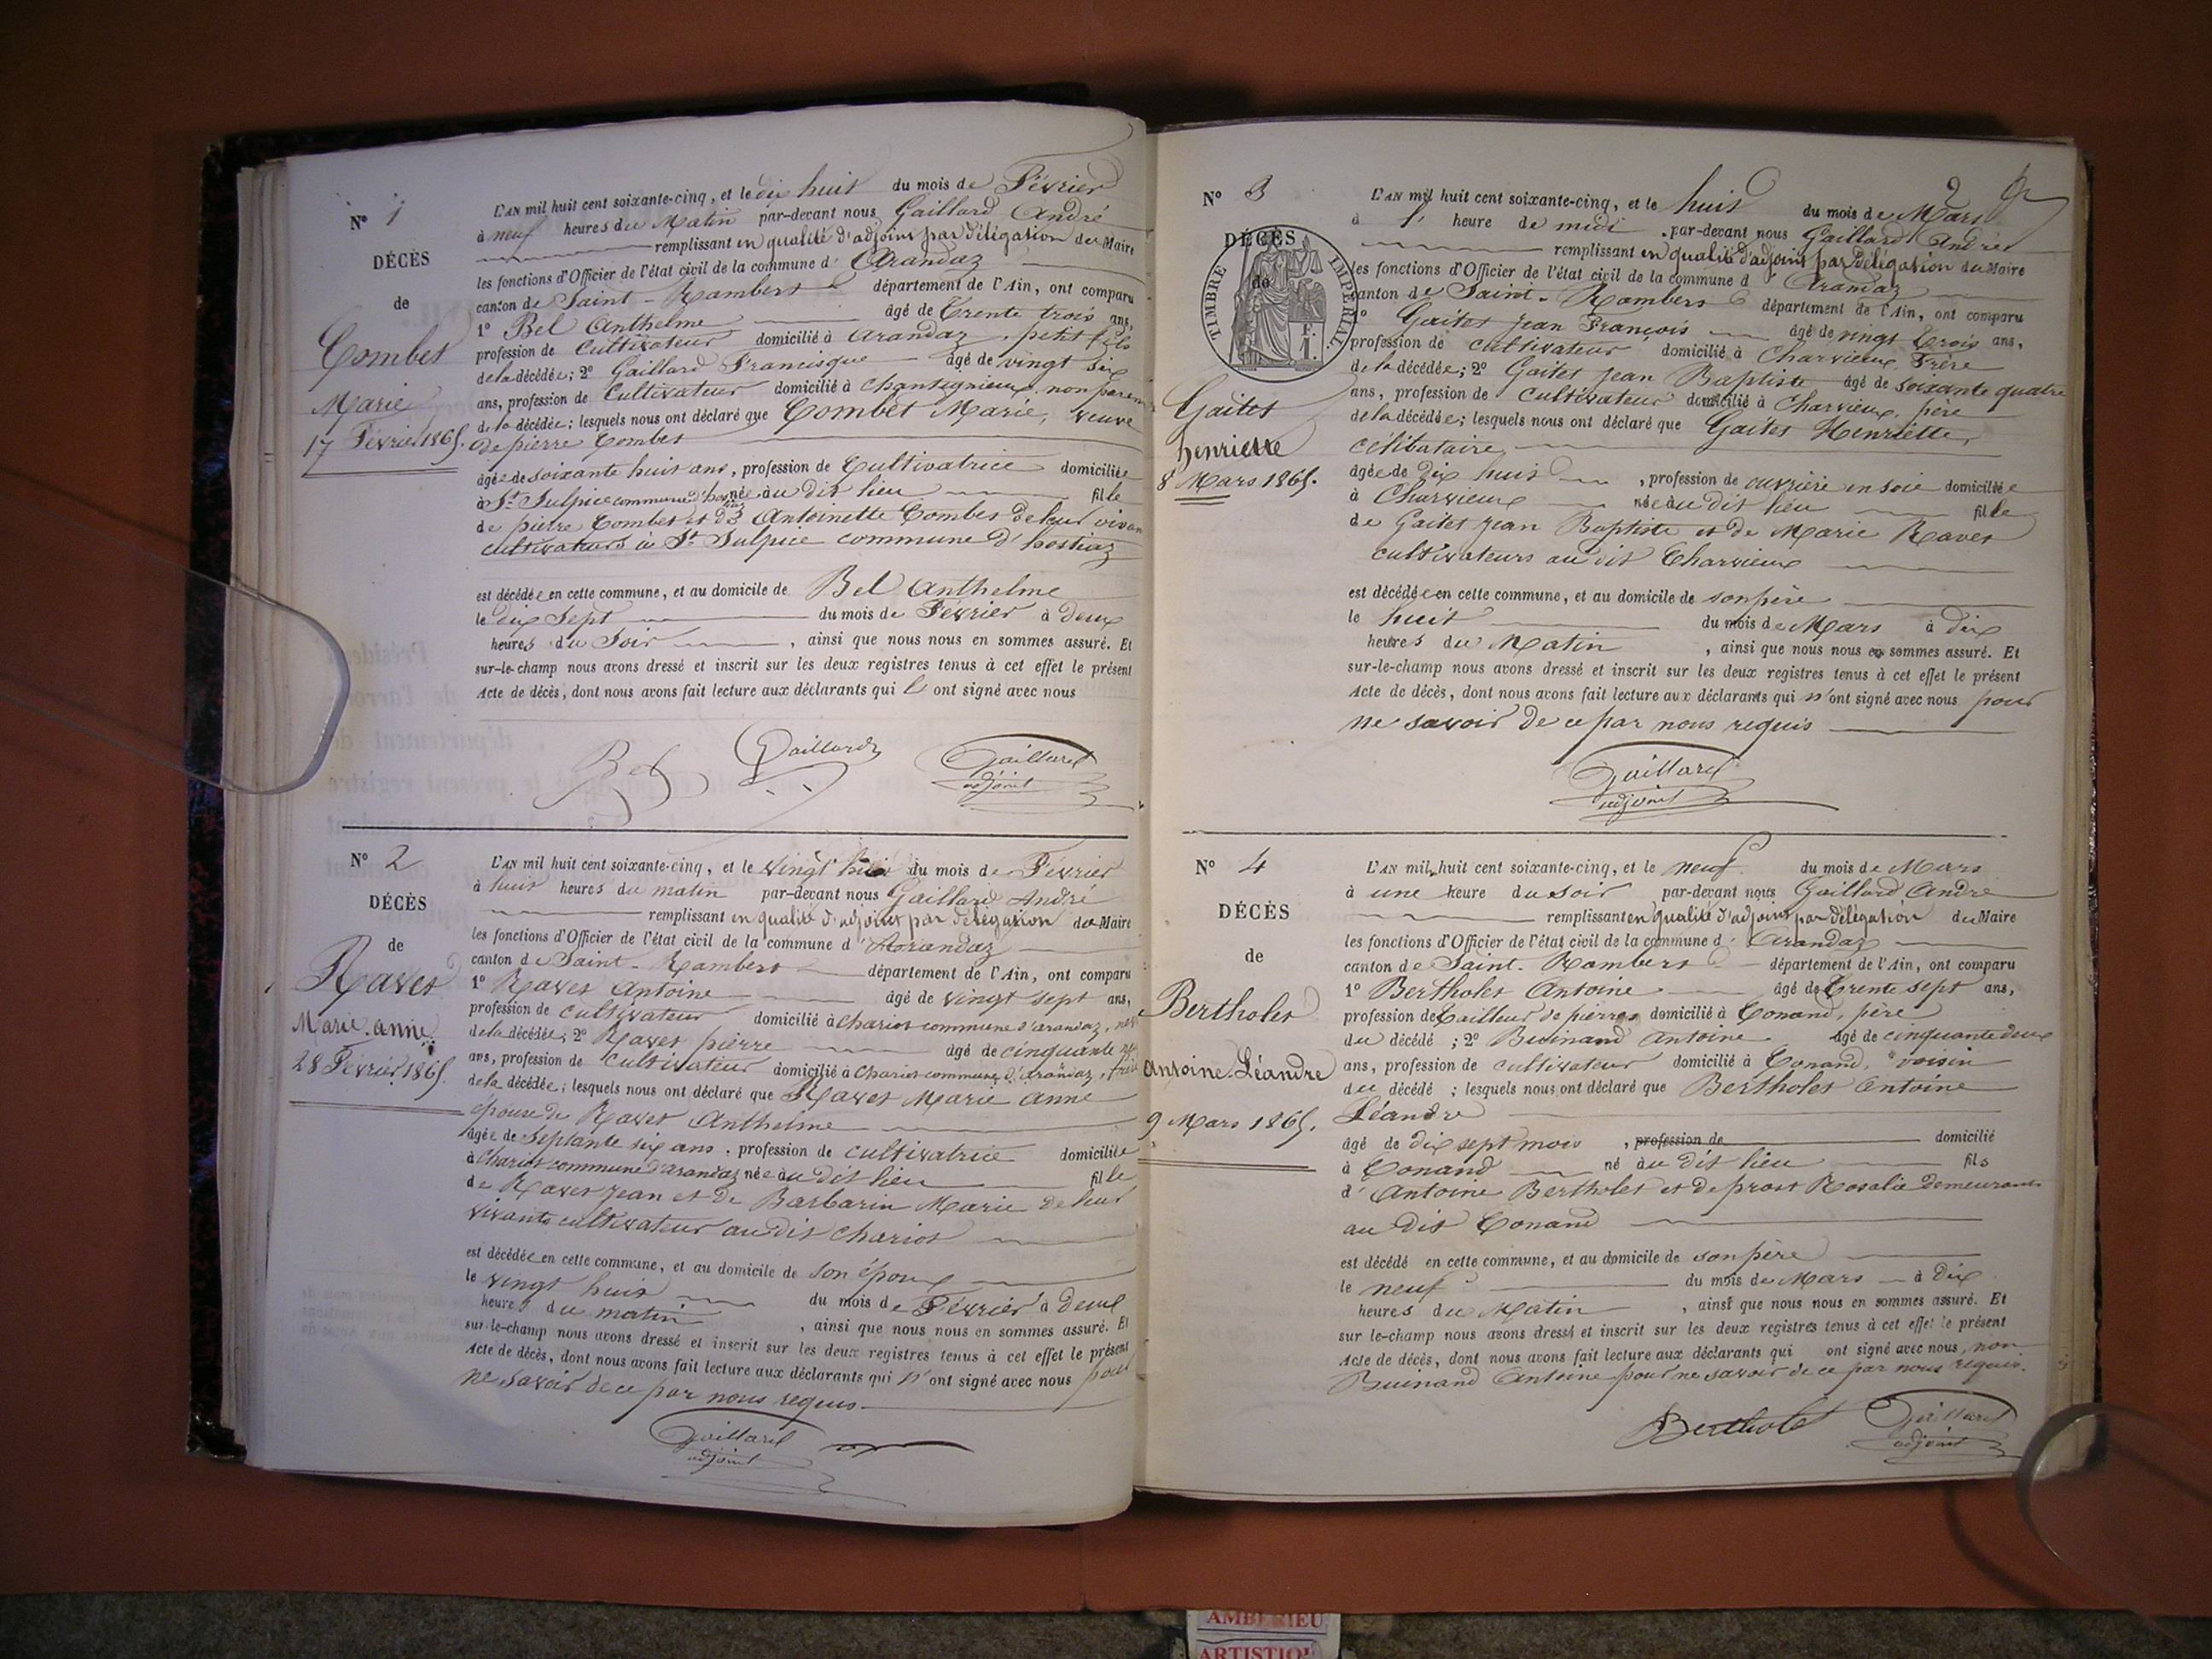 N° 1
DÉCÈS
de
Combet
Marie
17 Février 1865.
L'AN mil huit cent soixante-cinq, et le dix huit du mois de Février
à neuf heures du Matin par-devant nous Gaillard André
remplissant en qualité d'adjoint par délégation du Maire
les fonctions d'Officier de l'état civil de la commune d'Arandaz
canton de Saint-Rambert département de l'Ain, ont comparu
1° Bel Anthelme âgé de Trente trois ans,
profession de Cultivateur domicilié à arandaz, petit fils
de la décédée; 2° Gaillard Francisque âgé de vingt six
ans, profession de Cultivateur domicilié à Chantignieux, non parent
de la décédée; lesquels nous ont déclaré que Combet Marie, veuve
de pierre Combet
âgée de soixante huit ans, profession de Cultivatrice domiciliée
à St Sulpice commune d' née au dit lieu fille
de pierre Combet et de Antoinette Combet de leur vivant
cultivateurs à St Sulpice commune d'hostiaz
est décédée en cette commune, et au domicile de Bel Anthelme
le dix Sept du mois de Février à deux
heures du Soir, ainsi que nous nous en sommes assuré. Et
sur-le-champ nous avons dressé et inscrit sur les deux registres tenus à cet effet le présent
Acte de décès, dont nous avons fait lecture aux déclarants qui l'ont signé avec nous
Bel Gaillard Gaillard
adjoint
N° 2
DÉCÈS
de
Ravet
Marie anne
28 Février 1865.
L'AN mil huit cent soixante-cinq, et le vingt huit du mois de Février
à huit heures du matin par-devant nous Gaillard André
remplissant en qualité d'adjoint par délégation du Maire
les fonctions d'Officier de l'état civil de la commune d'Arandaz
canton de Saint-Rambert département de l'Ain, ont comparu
1° Ravet Antoine âgé de vingt sept ans,
profession de cultivateur domicilié à chariot commune d'arandaz,
de la décédée; 2° Ravet pierre âgé de cinquante
ans, profession de Cultivateur domicilié à Chariot commune d'arandaz, frère
de la décédée; lesquels nous ont déclaré que Ravet Marie Anne
épouse de Ravet Anthelme
âgée de Septante six ans, profession de cultivatrice domiciliée
à Chariot commune d'arandaz née au dit lieu fille
de Ravet Jean et de Barbarin Marie de leur
vivants cultivateur au dit chariot
est décédée en cette commune, et au domicile de son époux
le vingt huit du mois de Février à deux
heures du matin, ainsi que nous nous en sommes assuré. Et
sur-le-champ nous avons dressé et inscrit sur les deux registres tenus à cet effet le présent
Acte de décès, dont nous avons fait lecture aux déclarants qui n'ont signé avec nous pour
ne savoir de ce par nous requis
Gaillard
adjoint
2
N° 3
DÉCÈS
de
TIMBRE IMPÉRIAL
Gaitet
henriette
8 Mars 1865.
L'AN mil huit cent soixante-cinq, et le huit du mois de Mars
à 1' heure de midi par-devant nous Gaillard André
remplissant en qualité d'adjoint par délégation du Maire
les fonctions d'Officier de l'état civil de la commune d Arandaz
canton de Saint-Rambert département de l'Ain, ont comparu
1° Gaitet Jean François âgé de vingt trois ans,
profession de cultivateur domicilié à Charvieux, Frère
de la décédée; 2° Gaitet Jean Baptiste âgé de soixante quatre
ans, profession de Cultivateur domicilié à Charvieux, père
de la décédée; lesquels nous ont déclaré que Gaitet Henriette,
célibataire
âgée de dix huit, profession de ouvrière en soie domiciliée
à Charvieux née au dit lieu fille
de Gaitet Jean Baptiste et de Marie Ravet
cultivateurs au dit Charvieux
est décédée en cette commune, et au domicile de son père
le huit du mois de Mars à dix
heures du Matin, ainsi que nous nous en sommes assuré. Et
sur-le-champ nous avons dressé et inscrit sur les deux registres tenus à cet effet le présent
Acte de décès, dont nous avons fait lecture aux déclarants qui n'ont signé avec nous pour
ne savoir de ce par nous requis
Gaillard
adjoint
N° 4
DÉCÈS
de
Bertholet
Antoine Léandre
9 Mars 1865.
L'AN mil huit cent soixante-cinq, et le neuf du mois de Mars
à une heure du soir par-devant nous Gaillard André
remplissant en qualité d'adjoint par délégation du Maire
les fonctions d'Officier de l'état civil de la commune d'Arandaz
canton de Saint-Rambert département de l'Ain, ont comparu
1° Bertholet Antoine âgé de Trente sept ans,
profession de Tailleur de pierres domicilié à Conand, père
du décédé; 2° Buinand Antoine âgé de cinquante deux
ans, profession de cultivateur domicilié à Conand, voisin
du décédé; lesquels nous ont déclaré que Bertholet Antoine
Léandre
âgé de dix sept mois, profession de domicilié
à Conand né au dit lieu fils
d'Antoine Bertholet et de prost Rosalie demeurants
au dit Conand
est décédé en cette commune, et au domicile de son père
le neuf du mois de Mars à dix
heures du Matin, ainsi que nous nous en sommes assuré. Et
sur le-champ nous avons dressé et inscrit sur les deux registres tenus à cet effet le présent
Acte de décès, dont nous avons fait lecture aux déclarants qui ont signé avec nous, non
Buinand Antoine pour ne savoir de ce par nous requis.
Bertholet Gaillard
adjoint
AMBERIEU
ARTISTIQ